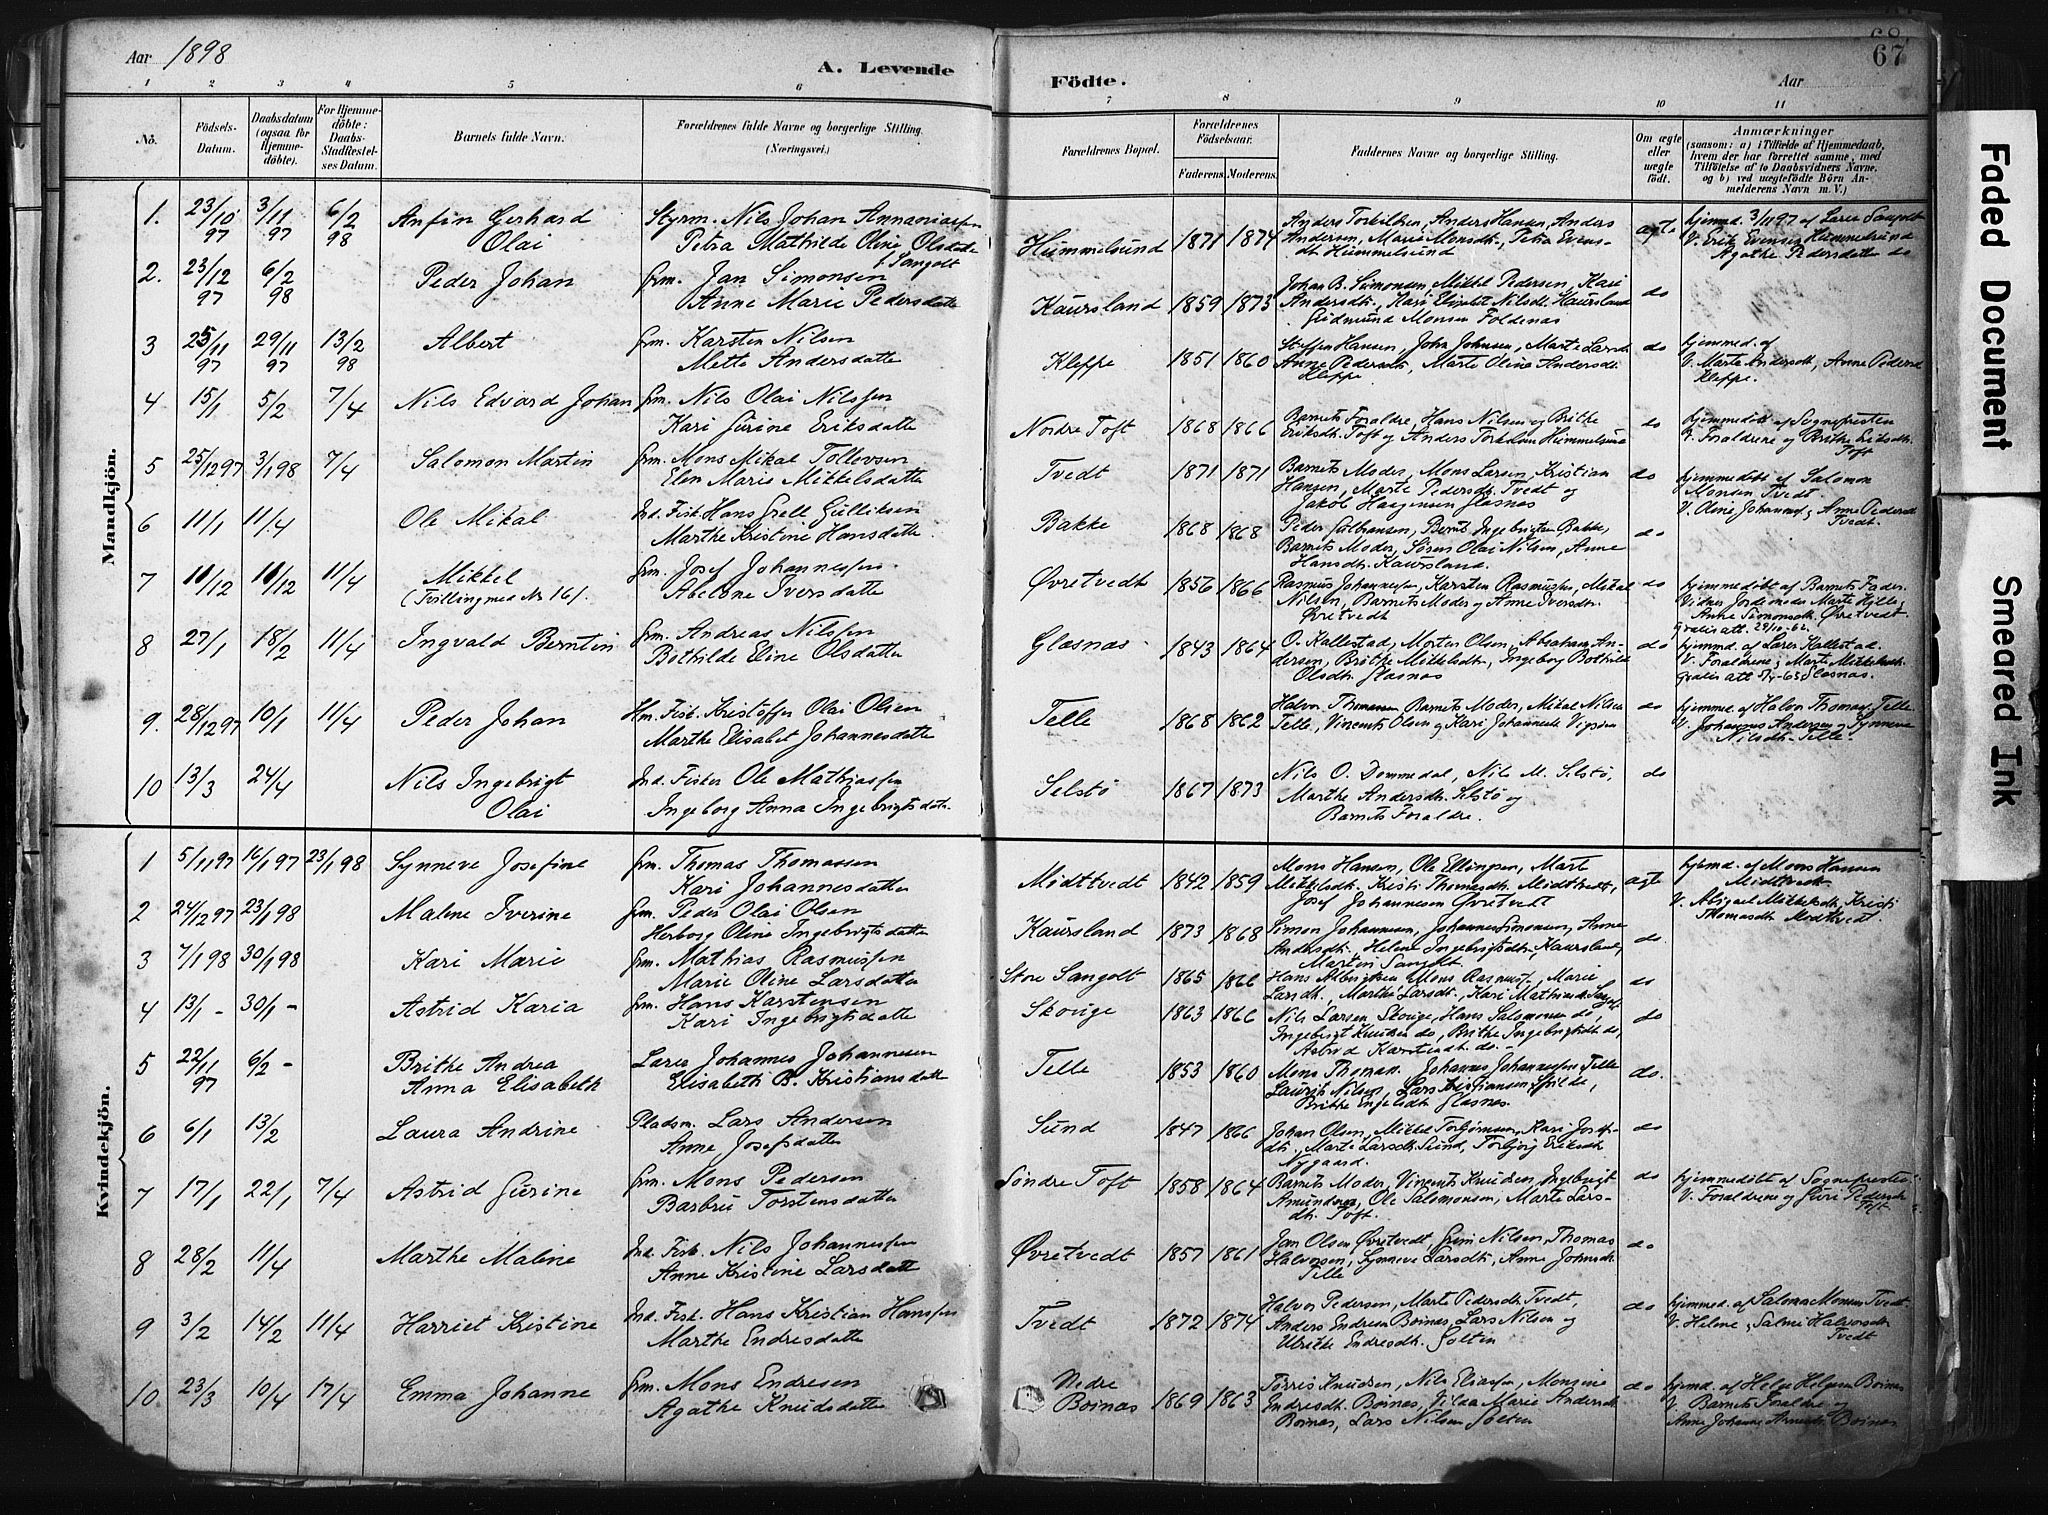 Aar 1898
A. Levende
Födte.
Aar
67
1 2 3 4 5 6 7 8 9 10 11
No.
Födsels-
Datum.
Daabsdatum
(ogsaa for
Hjemme-
döbte).
For Hjemme-
döbte:
Daabs-
Stadfæstel-
ses Datum.
Barnets fulde Navn.
Forældrenes fulde Navne og borgerlige Stilling.
(Næringsvei.)
Forældrenes Bopæl.
Forældrenes
Födselsaar.
Faderens. Moderens.
Faddernes Navne og borgerlige Stilling.
Om ægte
eller
uægte
födt.
Anmærkninger
(saasom: a) i Tilfælde af Hjemmedaab,
hvem der har forrettet samme, med
Tilföielse af to Daabsvidners Navne,
og b) ved uægtefödte Börn An-
melderens Navn m. V.)
Mandkjön.
1. 23/10 97 3/11 97 6/2 98 Anfin Gerhard
Olai
Styrm. Nils Johan Annaniassen
Petra Mathilde Oline Olsdatte
Himmelsund 1871 1874
Anders Torkilsen, Anders Hansen, Anders
Andersen, Marie Monsdt., Petra Evens-
dt Himmelsund
ægte
hjemmd. 3/11 97 af Lærer Sangolt
V. Erik Evensen Himmelsund
Agathe Pedersdatter do
2. 23/12 97 6/2 98 Peder Johan
Grm. Jan Simonsen
Anne Marie Pedersdatte
Kaursland 1859 1873
Johan B. Simonsen, Mikkel Pedersen, Kari
Andersdt., Kari Elisabet Nilsdt. Kaursland
Gudmund Monsen Foldenas
do
3 25/11 97 29/11 97 13/2 98 Albert
Grm. Karsten Nilsen
Mette Andersdatte
Kleppe 1851 1860
Steffen Hansen, John Johnsen, Marte Larsdt
Anne Pedersdt, Marte Oline Andersdt.
Kleppe
do
hjemmed. af
V. Marte Andersdt, Anne Pedersd
Kleppe.
4 15/1 5/2 7/4 Nils Edvard Johan
Grm. Nils Olai Nilssen
Kari Gurine Eriksdatte
Nordre Toft 1868 1866
Barnets Foraldre, Hans Nilsen og Brithe
Eriksdt. Toft og Anders Himmelsund
do
hjemmedöbt af Sognepresten
V. Foraldrene og Brithe Eriksdt.
Toft
5 25/12 97 3/1 98 7/4 Salomon Martin
Grm. Mons Mikal Tollevsen
Elen Marie Mikkelsdatte
Tvedt 1871 1871
Barnets Moder, Mons Larsen, Kristian
Hansen, Marte Pedersdt. Tvedt og
Jakob Haagensen Glasnes
do
hjemmedöbt af Salomon
Monsen Tvedt.
V. Oline Johannesd, Anne Pedersd
Tvedt.
6 11/1 11/4 Ole Mikal
Ind. Fisk. Hans Grell Gulliksen
Marthe Kristine Hansdatte
Bakke 1868 1868
Peder Bernt Ingebrigtsen Bakke,
Barnets Moder, Sören Olai Nilsen, Anne
Hansdt. Kaursland.
do
7 10/12 10/12 11/4 Mikkel
(Tvilling med No 16).
Grm. Josef Johannessen.
Abelone Iversdatte
Øvretvedt 1856 1866
Rasmus Johannesen, Karsten Rasmussen, Mikal
Nilsen, Barnets Moder og Anne Iversdt.
Øvretvedt
do
hjemmedöbt af Barnets Fader.
Vidner Jordemoder Marte Hille
Anne Simonsdt. Øvretvedt.
Gratis att. 29/10-62.
8 27/1 18/2 11/4 Ingvald Berntin
Grm. Andreas Nilssen
Bothilde Eline Olsdatte
Glasnas 1843 1864
O. Kallestad, Morten Olsen, Abraham An-
dersen, Brithe Mikkelsdt., Ingeborg Bothilde
Olsdt. Glasnas
do
hjemmd. af Lærer Kallestad.
V. Foraldrene, Marte Mikkelsdt.
Glasnas.
9. 28/12 97 10/1 11/4 Peder Johan
Hm. Fisk. Kristoffer Olai Olsen
Marthe Elisabet Johannesdatte
Telle 1868 1862
Halvor Thomassen Barnets Moder, Mikal Nilsen
Telle, Vincents Olsen og Kari Johannesdt Vigsöen
do
hjemmed. af Halvor Thomas. Telle
V. Johannes Andersen og Synneve
Nilsdt. Telle.
10 13/3 24/4 Nils Ingebrigt
Olai
Ind. Fisker Ole Mathiassen
Ingeborg Anna Ingebrigtsdatte
Selstö 1867 1873
Nils O. Dommedal, Nils M. Selstö,
Marthe Andersdt. Selstö og
Barnets Foraldre.
do
Kvindekjön.
1 5/11 97 16/1 97 23/1 98 Synneve Josefine
Grm. Thomas Thomassen
Kari Johannesdatte
Midttvedt 1842 1859
Mons Hansen, Ole Ellingsen, Marte
Mikkelsdt. Kristi Thomasdt. Midttvedt,
Josef Johannesen Øvretvedt
ægte
hjemd. af Mons Hansen
Midttvedt
V. Abigael Mikkelsdt, Kristi
Thomasdt Midttvedt.
2 24/12 97 23/1 98 Malene Iverine
Grm. Peder Olai Olsen
Herborg Oline Ingebrigtsdatte
Kaursland 1873 1868
Simon Johannesen, Johannes Simonsen, Anne
Andersdt., Helene Ingebrigtsdt. Kaursland,
Martin Sangolt
do.
3 7/1 98 30/1 98 Kari Marie
Grm. Mathias Rasmussen
Marie Oline Larsdatte
Store Sangolt 1865 1866
Hans Albrigtsen, Mons Rasmuss., Marie
Larsdt., Marthe Larsdt., Kari Mathiasdt. Sangolt
do
4 13/1 - 30/1 - Astrid Karia
Grm. Hans Karstensen
Kari Ingebrigtsdatte
Skouge 1863 1866
Nils Larsen Skouge, Hans Salomonsen do,
Ingebrigt Knudsen do, Brithe Ingebrigtsdt. do,
Astrid Karstensdt. do. -
do
5 22/11 97 6/2 - Brithe Andrea
Anna Elisabeth
Lærer Johannes Johannesen
Elisabeth B. Kristiansdatte
Telle 1853 1860
Mons Thomas. Johannes Johannessen Telle
Laurits Nilsen, Lars Kristiansen Spilde,
Brithe Engelsdt. Glasnes.
do.
6 6/1 13/2 Laura Andrine
Pladsm. Lars Andersen
Anne Josefsdatte
Sund 1847 1866
Johan Olsen, Mikkel Torbjörnsen, Kari Josefs-
dt., Marte Larsdt. Sund, Torbjör Eriksdt
Nygaard.
do
7 17/1 22/1 7/4 Astrid Gurine
Grm. Mons Pedersen
Barbru Torstensdatte
Söndre Toft 1858 1864
Barnets Moder, Vincents Knudsen, Ingebrigt
Amundsen, Ole Salomonsen, Marte Lars-
dt. Toft.
do
hjemmedöbt af Sognepresten
V. Foraldrene og Guri Pedersdt
Toft
8 28/2 11/4 Marthe Maline
Ind. Fisk. Nils Johannessen
Anne Kristine Larsdatte
Øvretvedt 1857 1861
Jan Olsen Øvretvedt, Nilsen, Thomas
Halvorsen, Synneve Larsdt., Anne Johnsdt.
Telle
do
9 3/2 14/2 11/4 Harriet Kristine
Ind. Fisk. Hans Kristian Hanssen
Marthe Endresdatte
Tvedt 1872 1874
Halvor Pedersen, Marte Pedersdt. Tvedt,
Anders Endresen Boinas, Lars Nilsen og
Ulrikke Endresdt. Golten
do
hjemmed. af Salomo Monsen Tvedt
V. Helene, Salmi Halvorsdt
Tvedt
10 23/3 10/4 17/4 Emma Johanne
Grm. Mons Endresen
Agathe Knudsdatte
Nedre
Boinas 1869 1863
Törris Knudsen, Nils Eliassen, Monsine
Endresdt. Boinas, Vilda Marie Andersdt
Boinas, Lars Nilsen Golten
do
hjemd. af Helge Helgesen Boinas
V. Barnets Foraldre og
Anne Johanne Boinas
Faded Document
Smeared Ink